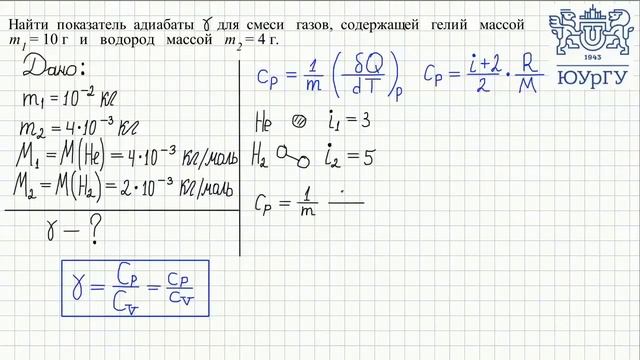 Найти показатель адиабаты γ для смеси газов, содержащей гелий массой
m₁ = 10 г и водород массой m₂ = 4 г.
1943
ЮУрГУ
Дано:
m₁ = 10⁻² кг
m₂ = 4·10⁻³ кг
M₁ = M(He) = 4·10⁻³ кг/моль
M₂ = M(H₂) = 2·10⁻³ кг/моль
γ – ?
γ = C_P/C_V = c_P/c_V
c_P = 1/m (δQ/dT)_P c_P = (i+2)/2 · R/M
He i₁ = 3
H₂ i₂ = 5
c_P = 1/m